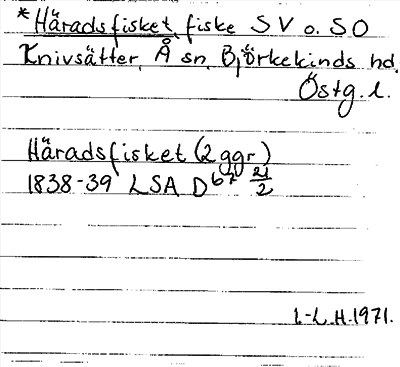 *Häradsfisket, fiske SV o. SO
Knivsätter, Å sn, Björkekinds hd.
Östg. l.
Häradsfisket (2 ggr)
1838-39 LSA D67 21/2
L-L.H.1971.